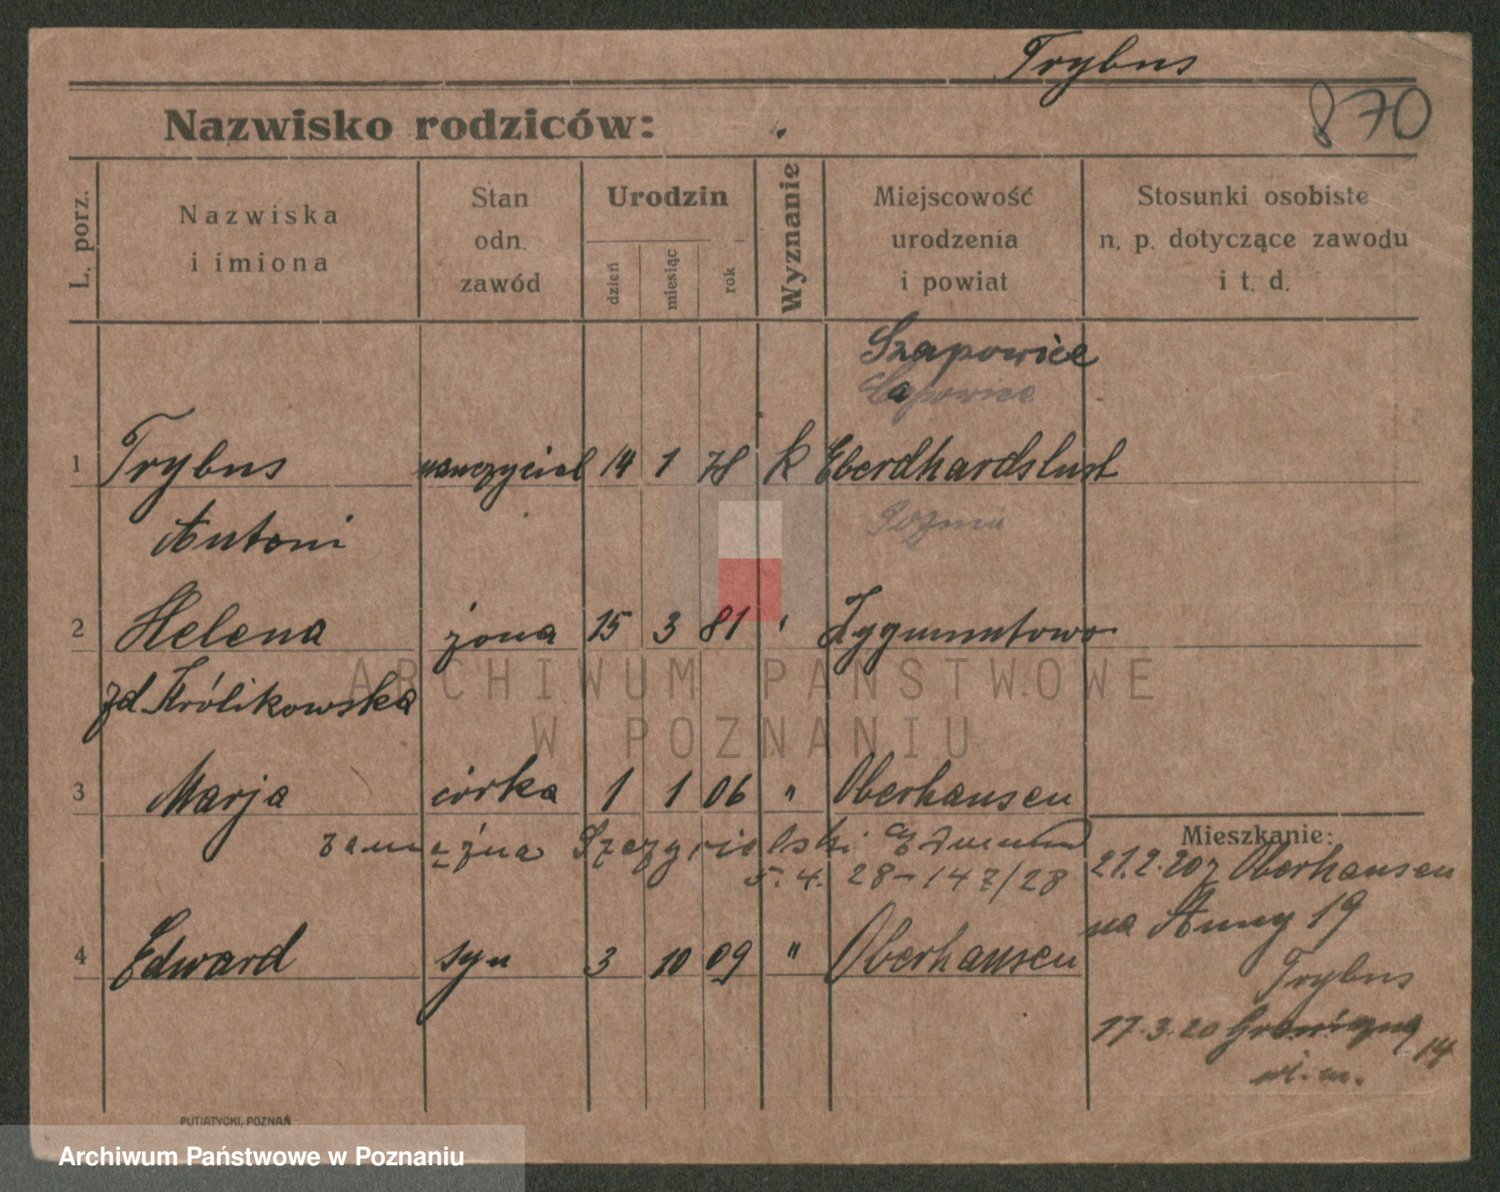 Trybus
870
Nazwisko rodziców:
L. porz.
Nazwiska i imiona
Stan odn. zawód
Urodzin
dzień
miesiąc
rok
Wyznanie
Miejscowość urodzenia i powiat
Stosunki osobiste n. p. dotyczące zawodu i t. d.
Szapowice
1 Trybus nauczyciel 14 1 78 k Eberdhardslust
Antoni
2 Helena żona 15 3 81 " Zygmuntowo
zd. Królikowska
3 Marja córka 1 1 06 " Oberhausen
zamężna Szczygielski Edmund
5.4.28-147/28
4 Edward syn 3 10 09 " Oberhausen
Mieszkanie:
21.2.20 z Oberhausen
na Anny 19
Trybus
17.3.20 Graniczna 14
wł. m.
PUTIATYCKI, POZNAŃ
ARCHIWUM PAŃSTWOWE
W POZNANIU
Archiwum Państwowe w Poznaniu